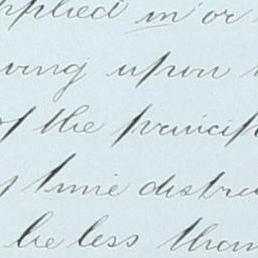 pplied in or
ving upon
of the princip
time distre
be less than